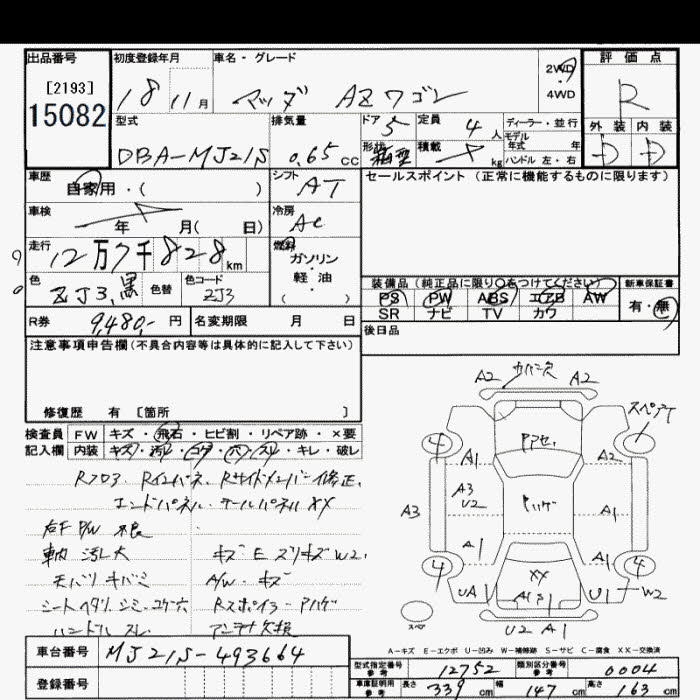 出品番号 初度登録年月 車名・グレード 2WD 評価点
[2193] 18 11月 マツダ AZワゴン 4WD R
15082 型式 排気量 ドア 5 定員 4人 ディーラー・並行 外装 内装
DBA-MJ21S 0.65cc 形状 箱型 積載 kg モデル年式 年 D D
ハンドル 左・右
車歴 自家用・( ) シフト AT セールスポイント (正常に機能するものに限ります)
車検 年 月( 日) 冷房 AC
走行 12万7千828km 燃料 ガソリン・軽油 ( )
色 ZJ3,黒 色替 色コード ZJ3
装備品 (純正品に限り〇をつけてください) 新車保証書
PS PW ABS エアB AW 有・無
SR ナビ TV カワ
R券 9,480.- 円 名変期限 月 日 後日品
注意事項申告欄(不具合内容等は具体的に記入して下さい)
修復歴 有 [箇所 ]
検査員 FW キズ・飛石・ヒビ割・リペア跡・×要
記入欄 内装 キズ・汚・コゲ・穴・スレ・キレ・破レ
Rフロア Rインパネ、Rサイドメンバー修正、
エンドパネル・テールパネル XX
右F P/W 不良
車内 汚レ大 キズ E スリキズ W2,
モバリ キバミ A/W・キズ
シートヘタリ シミ・コゲ穴 Rスポイラー アハゲ
ハンドル スレ アンテナ欠損
A2 カバー欠 A2
スペアT
4 A1 A2
A3 A3 U2 Fハゲ A1
A1 A1
4 XX 4
UA1 U1 W2
スペア U2 A1
A-キズ E-エクボ U-凹み W-補修跡 S-サビ C-腐食 XX-交換済
車台番号 MJ21S-493664
登録番号
型式指定番号 参考 12752 類別区分番号 参考 0004
車庫証明用 参考 長さ 339 cm 幅 147 cm 高さ 163 cm